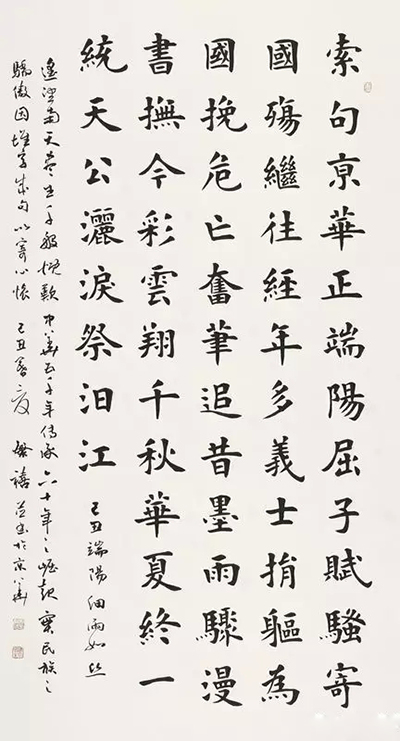 索句亰華正端陽屈子賦騷寄
國殤繼往經年多義士捐軀為
國挽危亡奮筆追昔墨雨驟漫
書撫今彩雲翔千秋華夏終一
統天公灑淚祭汨江 己丑端陽細雨如丝
遙望南天生千般慨歎中華五千年傳承六十年之崛起實民族之
驕傲因堆字成句以寄心懷 己丑夏 禧並書於京華